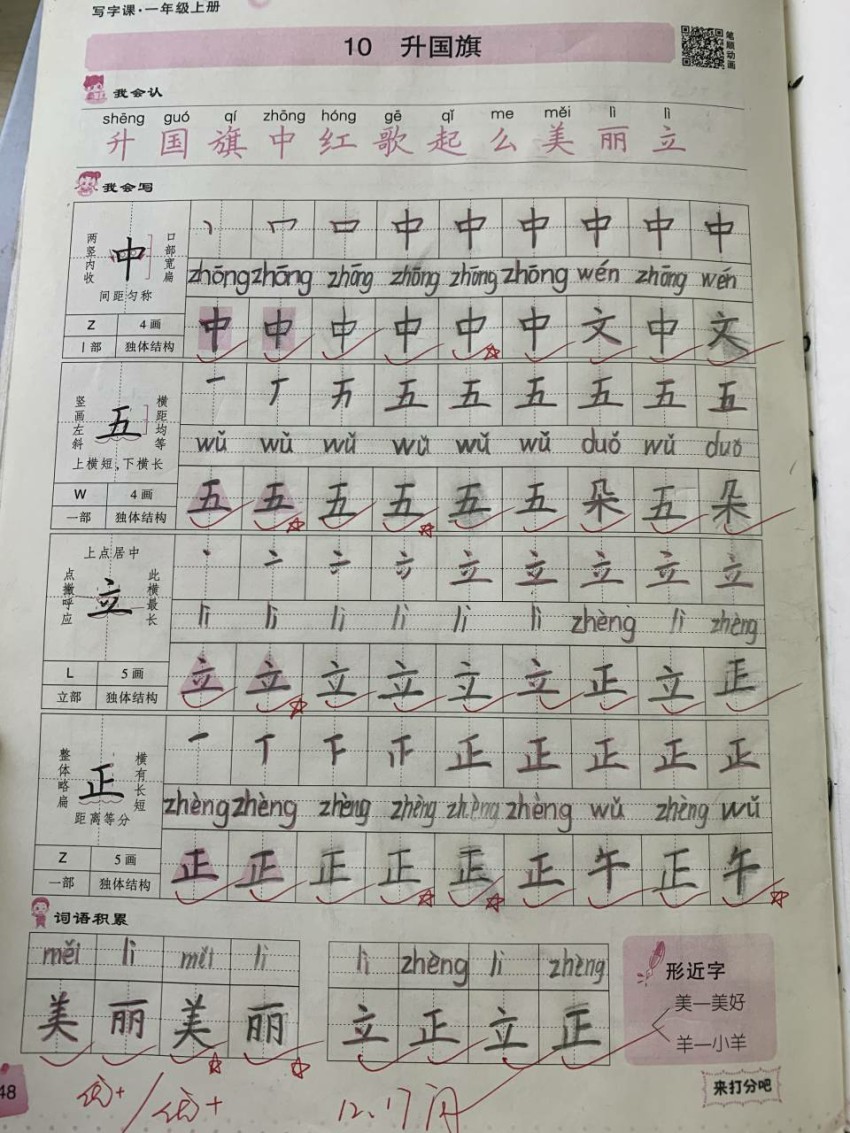 写字课·一年级上册
10 升国旗
笔顺动画
我会认
shēng guó qí zhōng hóng gē qǐ me měi lì lì
升 国 旗 中 红 歌 起 么 美 丽 立
我会写
两竖内收
中
口部宽扁
间距匀称
丶 冖 口 中 中 中 中 中 中
zhōng zhōng zhōng zhōng zhōng zhōng wén zhōng wén
Z 4画
丨部 独体结构
中 中 中 中 中 中 文 中 文
竖画左斜
五
横距均等
上横短,下横长
一 丆 五 五 五 五 五 五
wǔ wǔ wǔ wǔ wǔ wǔ duǒ wǔ duǒ
W 4画
一部 独体结构
五 五 五 五 五 五 朵 五 朵
上点居中
点撇呼应
立
此横最长
丶 亠 立 立 立 立 立
lì lì lì lì lì lì zhèng lì zhèng
L 5画
立部 独体结构
立 立 立 立 立 立 正 立 正
整体略扁
正
横有长短
距离等分
一 丅 下 正 正 正 正 正
zhèng zhèng zhèng zhèng zhèng zhèng wǔ zhèng wǔ
Z 5画
一部 独体结构
正 正 正 正 正 正 午 正 午
词语积累
měi lì měi lì
美 丽 美 丽
lì zhèng lì zhèng
立 正 立 正
形近字
美—美好
羊—小羊
48
优+
优+
12.17
来打分吧